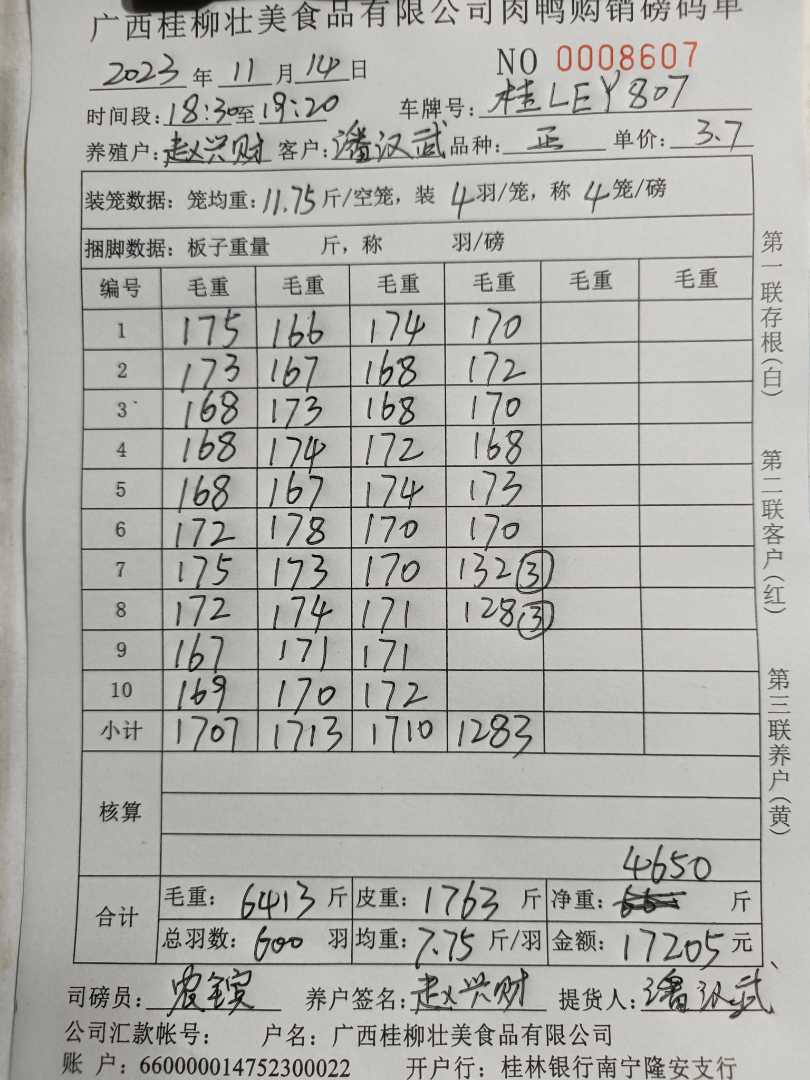 广西桂柳壮美食品有限公司肉鸭购销磅码单
2023 年 11 月 14 日 NO 0008607
时间段: 18:30 至 19:20 车牌号: 桂LEY807
养殖户: 赵兴财 客户: 潘汉武 品种: 正 单价: 3.7
装笼数据: 笼均重: 11.75 斤/空笼, 装 4 羽/笼, 称 4 笼/磅
捆脚数据: 板子重量 斤, 称 羽/磅
编号 毛重 毛重 毛重 毛重 毛重 毛重
1 175 166 174 170
2 173 167 168 172
3 168 173 168 170
4 168 174 172 168
5 168 167 174 173
6 172 178 170 170
7 175 173 170 132 ③
8 172 174 171 128 ③
9 167 171 171
10 169 170 172
小计 1707 1713 1710 1283
核算
4650
合计 毛重: 6413 斤 皮重: 1763 斤 净重: 斤
总羽数: 600 羽 均重: 7.75 斤/羽 金额: 17205 元
司磅员: 养户签名: 赵兴财 提货人: 潘汉武
公司汇款帐号: 户名: 广西桂柳壮美食品有限公司
账 户: 660000014752300022 开户行: 桂林银行南宁隆安支行
第一联存根(白) 第二联客户(红) 第三联养户(黄)